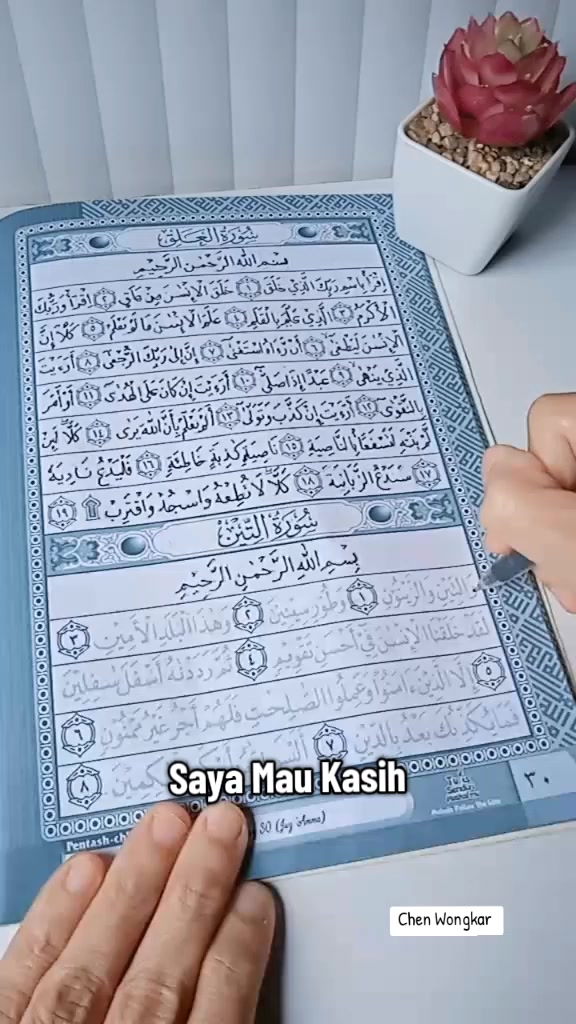 سُورَةُ الْعَلَقِ
بِسْمِ اللهِ الرَّحْمٰنِ الرَّحِيْمِ
اِقْرَأْ بِاسْمِ رَبِّكَ الَّذِيْ خَلَقَ ١ خَلَقَ الْاِنْسٰنَ مِنْ عَلَقٍ ٢ اِقْرَأْ وَرَبُّكَ
الْاَكْرَمُ ٣ الَّذِيْ عَلَّمَ بِالْقَلَمِ ٤ عَلَّمَ الْاِنْسٰنَ مَا لَمْ يَعْلَمْ ٥ كَلَّآ اِنَّ
الْاِنْسٰنَ لَيَطْغٰى ٦ اَنْ رَّاٰهُ اسْتَغْنٰى ٧ اِنَّ اِلٰى رَبِّكَ الرُّجْعٰى ٨ اَرَءَيْتَ
الَّذِيْ يَنْهٰى ٩ عَبْدًا اِذَا صَلّٰى ١٠ اَرَءَيْتَ اِنْ كَانَ عَلَى الْهُدٰى ١١ اَوْ اَمَرَ
بِالتَّقْوٰى ١٢ اَرَءَيْتَ اِنْ كَذَّبَ وَتَوَلّٰى ١٣ اَلَمْ يَعْلَمْ بِاَنَّ اللهَ يَرٰى ١٤ كَلَّا لَئِنْ
لَّمْ يَنْتَهِ لَنَسْفَعًا بِالنَّاصِيَةِ ١٥ نَاصِيَةٍ كَاذِبَةٍ خَاطِئَةٍ ١٦ فَلْيَدْعُ نَادِيَهٗ
١٧ سَنَدْعُ الزَّبَانِيَةَ ١٨ كَلَّا لَا تُطِعْهُ وَاسْجُدْ وَاقْتَرِبْ ۩ ١٩
سُورَةُ التِّيْنِ
بِسْمِ اللهِ الرَّحْمٰنِ الرَّحِيْمِ
وَالتِّيْنِ وَالزَّيْتُوْنِ ١ وَطُوْرِ سِيْنِيْنَ ٢ وَهٰذَا الْبَلَدِ الْاَمِيْنِ ٣
لَقَدْ خَلَقْنَا الْاِنْسٰنَ فِيْٓ اَحْسَنِ تَقْوِيْمٍ ٤ ثُمَّ رَدَدْنٰهُ اَسْفَلَ سٰفِلِيْنَ
٥ اِلَّا الَّذِيْنَ ءَامَنُوْا وَعَمِلُوا الصّٰلِحٰتِ فَلَهُمْ اَجْرٌ غَيْرُ مَمْنُوْنٍ ٦
فَمَا يُكَذِّبُكَ بَعْدُ بِالدِّيْنِ ٧ اَلَيْسَ ٨
Saya Mau Kasih
30 (Juz 'Amma)
٣٠
Chen Wongkar